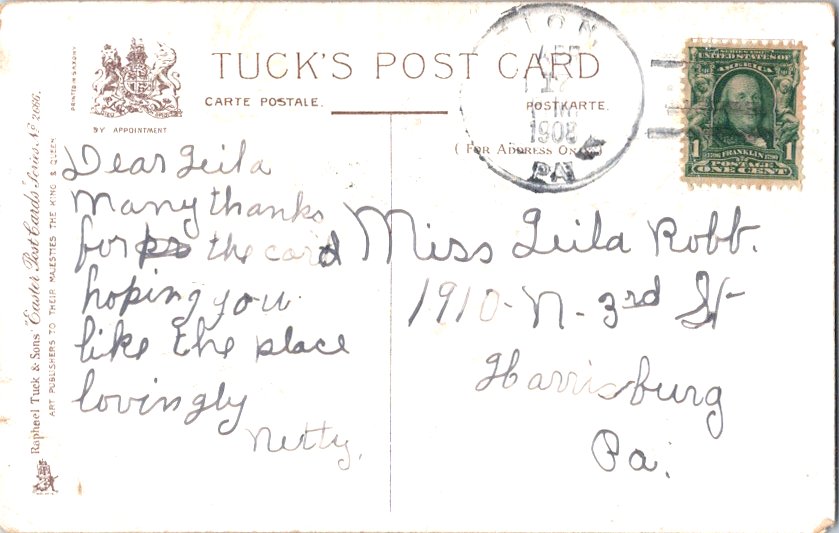 TUCK'S POST CARD
CARTE POSTALE.
POSTKARTE.
(FOR ADDRESS ONLY)
BY APPOINTMENT
PRINTED IN SAXONY
Raphael Tuck & Sons' "Easter Post Cards" Series No. 2095.
ART PUBLISHERS TO THEIR MAJESTIES THE KING & QUEEN.
17
1908
PA
SERIES 1902
UNITED STATES OF
AMERICA
1 FRANKLIN 1
POSTAGE
ONE CENT
Dear Leila
Many thanks
for the card
hoping you
like the place
lovingly
Netty.
Miss Leila Robb.
1910-N-3rd St
Harrisburg
Pa.